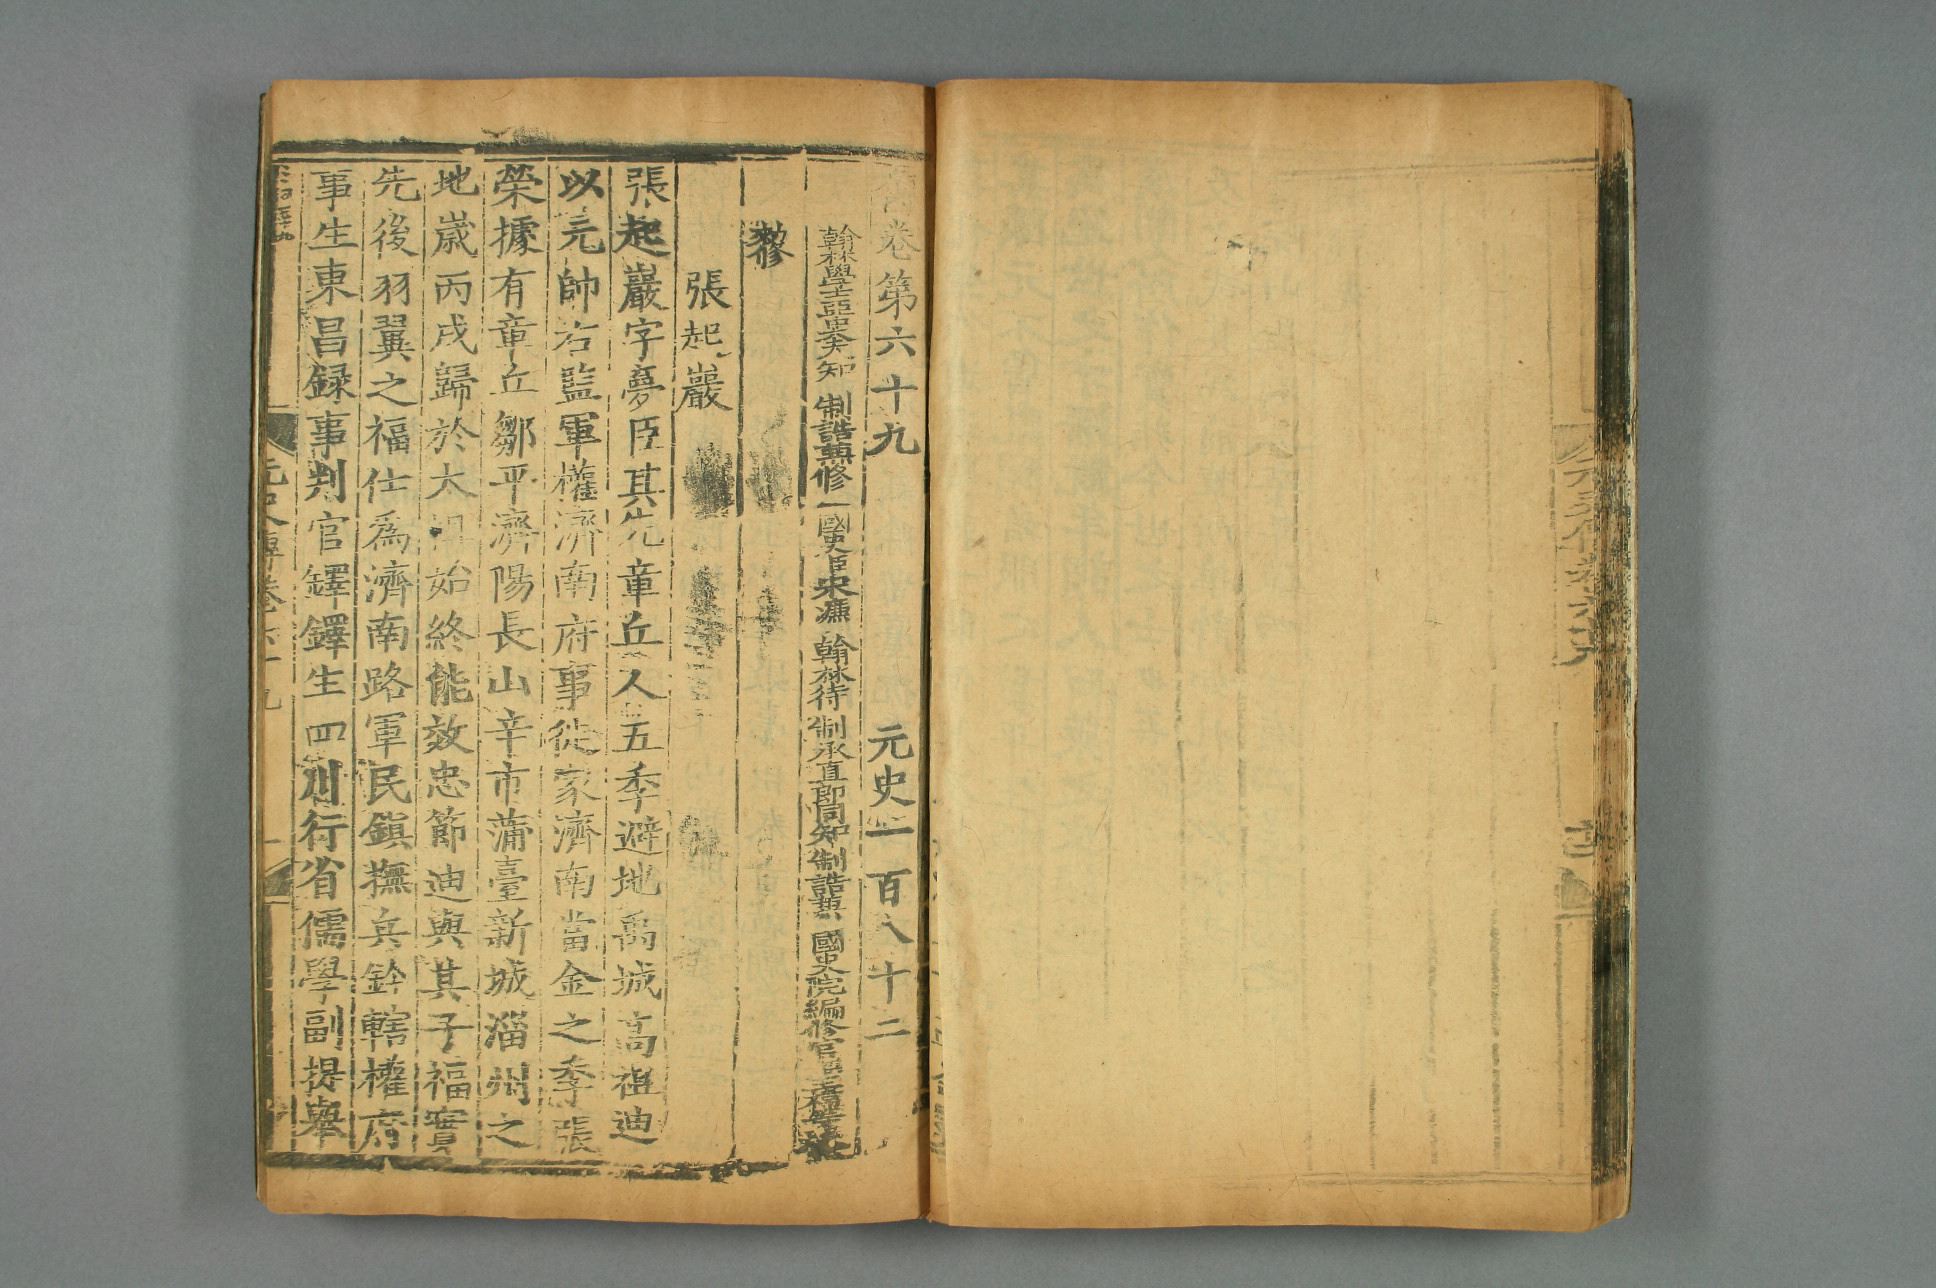 卷第六十九 元史一百八十二
翰林學士亞中大夫知 制誥兼修 國史臣宋濂 翰林待制承直郎同知制誥兼 國史院編修官臣王禕等奉
敕修
張起巖
張起巖字夢臣其先章丘人五季避地禹城高祖迪
以元帥右監軍權濟南府事徙家濟南當金之季張
榮據有章丘鄒平濟陽長山辛市蒲臺新城淄州之
地歲丙戌歸於太祖始終能效忠節迪與其子福實
先後羽翼之福仕爲濟南路軍民鎮撫兵鈐轄權府
事生東昌録事判官鐸鐸生四川行省儒學副提舉
元史列傳卷六十九